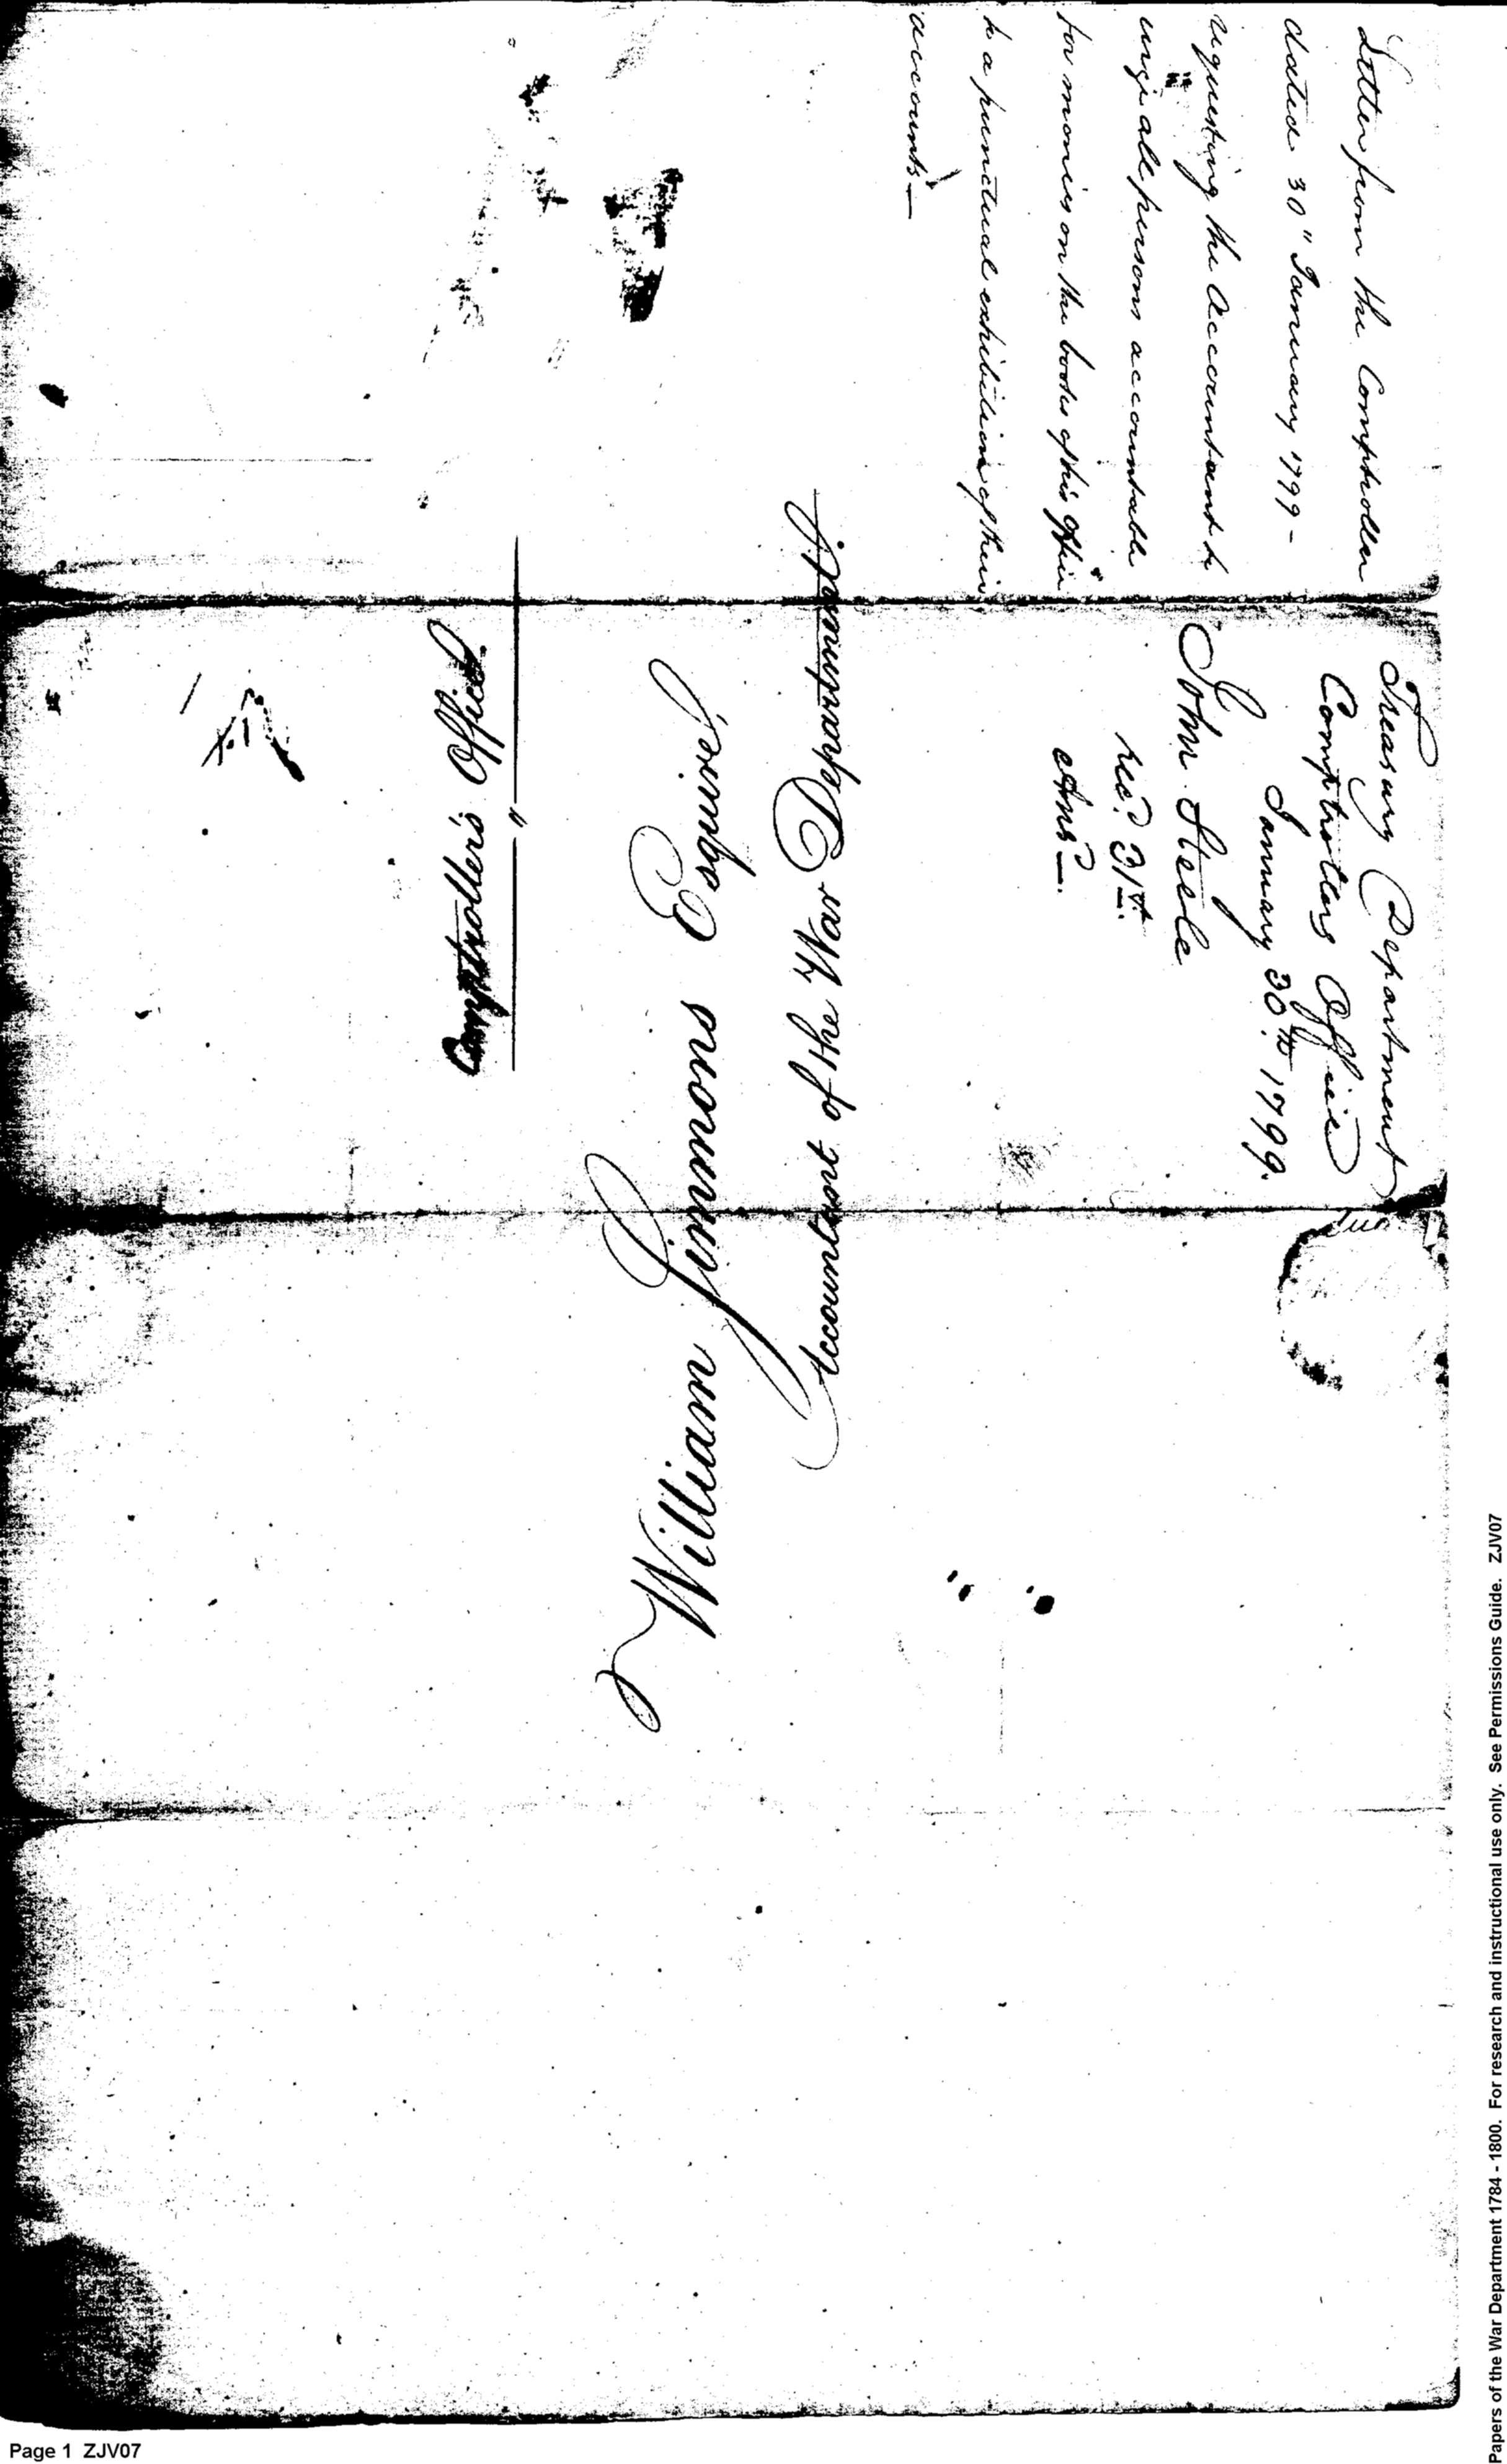 Letter from the Comptroller
dated 30" January 1799 -
requesting the Accountant to
urge all persons accountable
for monies on the books of his Office
to a punctual exhibition of their
accounts —
Treasury Department
Comptrollers Office
January 30th. 1799.
John Steele
Recd. 31st.
Ansd.
William Simmons Esquire
Accountant of the War Department
Comptroller's Office.
Page 1 ZJV07
Papers of the War Department 1784 - 1800. For research and instructional use only. See Permissions Guide. ZJV07